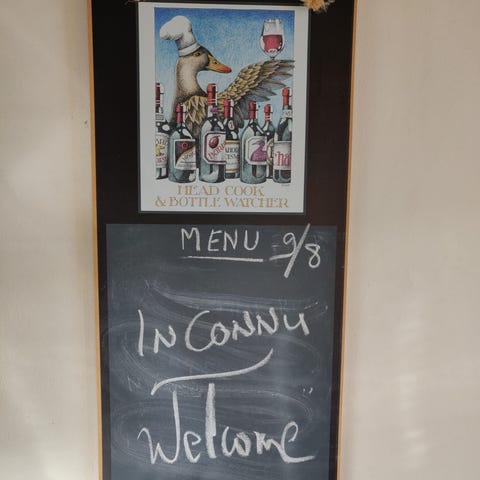 HEAD COOK
& BOTTLE WATCHER
MENU 9/8
INCONNU
Welcome